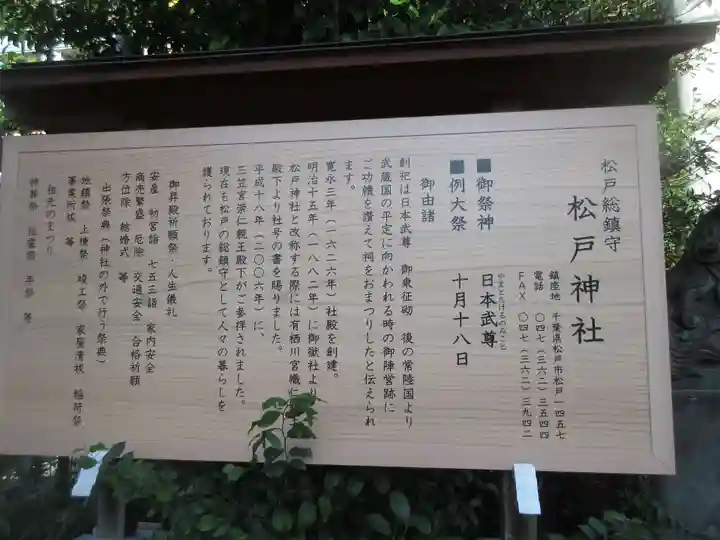 松戸総鎮守
松戸神社
鎮座地 千葉県松戸市松戸一四五七
電話 〇四七(三六二)三五四四
FAX 〇四七(三六二)三九四二
■御祭神 日本武尊
やまとたけるのみこと
■例大祭 十月十八日
御由諸
創祀は日本武尊 御東征砌 後の常陸国より
武蔵国の平定に向かわれる時の御陣営跡に
ご功績を讃えて祠をおまつりしたと伝えられ
ます。
寛永三年(一六二六年)社殿を創建。
明治十五年(一八八二年)に御嶽社より
松戸神社と改称する際には有栖川宮幟仁
殿下より社号の書を賜りました。
平成十八年(二〇〇六年)に、
三笠宮崇仁親王殿下がご参拝されました。
現在も松戸の総鎮守として人々の暮らしを
護られております。
御昇殿祈願祭・人生儀礼
安産 初宮詣 七五三詣 家内安全
商売繁盛 厄除 交通安全 合格祈願
方位除 結婚式 等
出張祭典(神社の外で行う祭典)
地鎮祭 上棟祭 竣工祭 家屋清祓 稲荷祭
事業所祓 等
祖先のまつり
神葬祭 慰霊祭 年祭 等